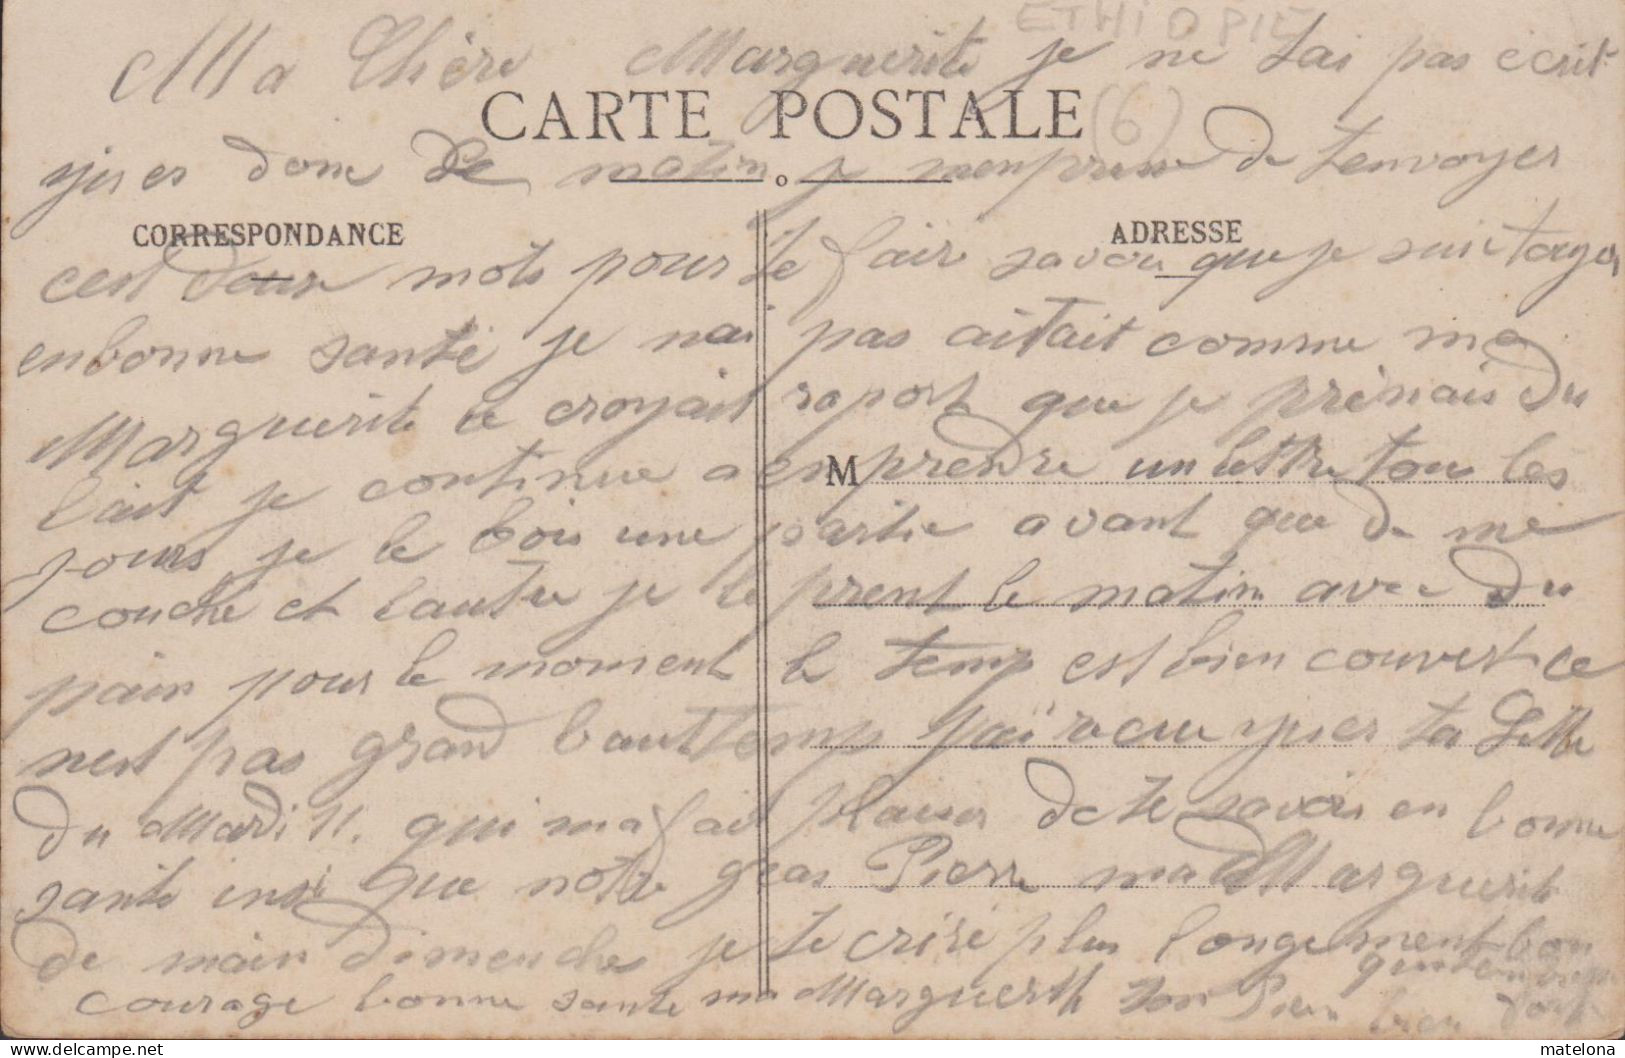 ETHIOPIE
Ma Chère Marguerite je ne tai pas écrit
(6)
CARTE POSTALE
yier donc ce matin je menpresse de tenvoyer
CORRESPONDANCE ADRESSE
cest deux mots pour te fair savoir que je suis toujou
en bonne santé je nai pas aitait comme ma
Marguerite le croyait raport que je prenais du
lait je continue a en prendre un lettre tous les
M
jours je le bois une partie avant que de me
couché et lautre je le prent le matin avec du
pain pour le moment le temp est bien couvert ce
nest pas grand bauttemp jai recu yier ta Lettre
du Mardi 11. qui ma fait plaisir de te savoir en bonne
santé insi que notre gras Pierre ma Marguerite
de main dimenche je te criré plus longement bon
courage bonne sante ma Marguerite ton Pierre bien
matelona